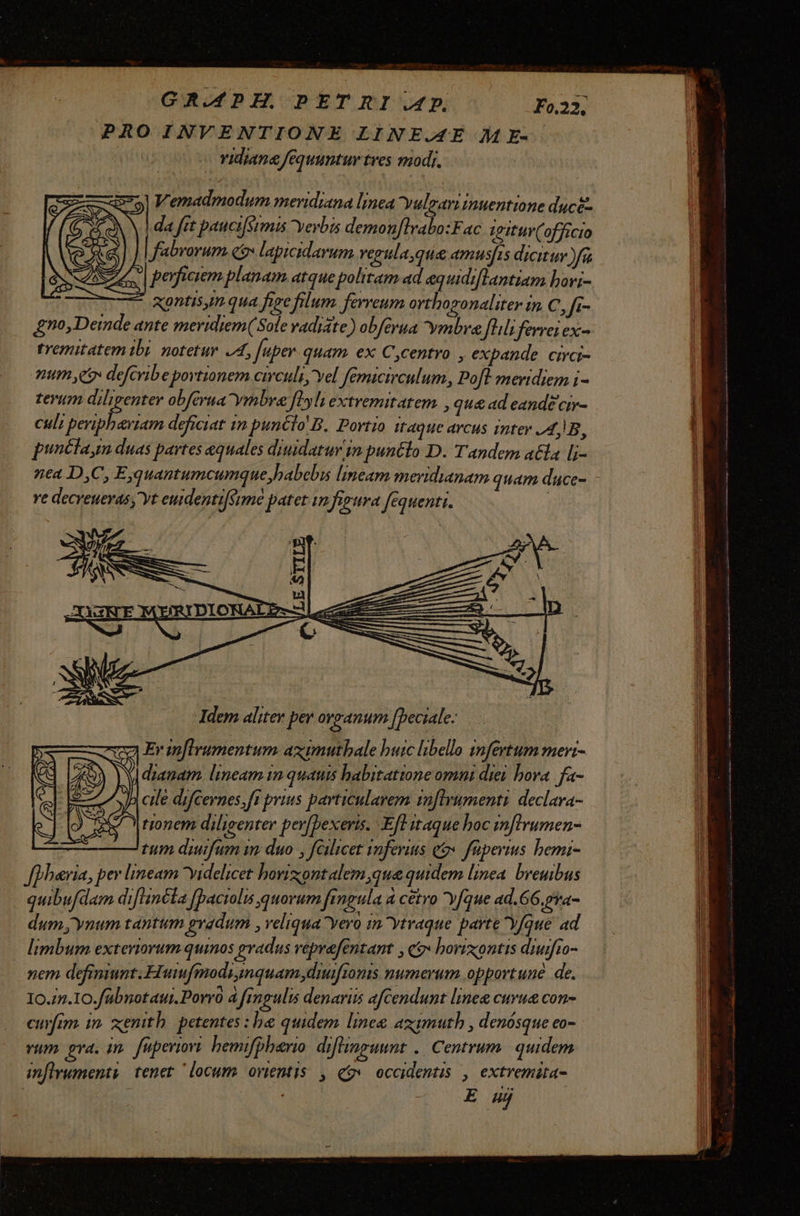 GRAPH. PETRI AP. Fo.22,
PRO INVENTIONE LINEAE ME-
ridianæ sequuntur tres modi.
Q Vemadmodum meridiana linea vulgari inuentione ducē-
da sit paucissimis verbis demonstrabo: Fac igitur (officio
fabrorum & lapicidarum regula, quæ amussis dicitur) su
perficiem planam atque politam ad æquidistantiam hori-
zontis, in qua fige filum ferreum orthogonaliter in C, si-
gno, Deinde ante meridiem (Sole radiāte) obserua vmbræ stili ferrei ex-
tremitatem ibi notetur A, super quam ex C, centro, expande circi-
num, & describe portionem circuli, vel semicirculum, Post meridiem i-
terum diligenter obserua vmbræ styli extremitatem, quæ ad eandē cir-
culi peripheriam deficiat in puncto B. Portio itaque arcus inter A, B,
puncta, in duas partes æquales diuidatur in puncto D. Tandem acta li-
nea D, C, E, quantumcumque, habebis lineam meridianam quam duce-
re decreueras, vt euidentissime patet in figura sequenti.
A
LE STILE
LIGNE MERIDIONALE
C
D
B
Idem aliter per organum speciale:
PEr instrumentum azimuthale huic libello insertum meri-
dianam lineam in quauis habitatione omni diei hora fa-
cilè discernes, si prius particularem instrumenti declara-
tionem diligenter perspexeris. Est itaque hoc instrumen-
tum diuisum in duo, scilicet inferius & superius hemi-
sphæria, per lineam videlicet horizontalem, quæ quidem linea breuibus
quibusdam distincta spaciolis, quorum singula à cētro vsque ad. 66. gra-
dum, vnum tantum gradum, reliqua vero in vtraque parte vsque ad
limbum exteriorum quinos gradus repræsentant, & horizontis diuisio-
nem definiunt. Huiusmodi, inquam, diuisionis numerum opportune de.
10. in. 10. subnotaui. Porrò à singulis denariis ascendunt lineæ curuæ con-
cursim in zenith petentes: hæ quidem lineæ azimuth, denósque eo-
rum gra. in superiori hemisphærio distinguunt. Centrum quidem
instrumenti tenet locum orientis, & occidentis, extremita-
E iij